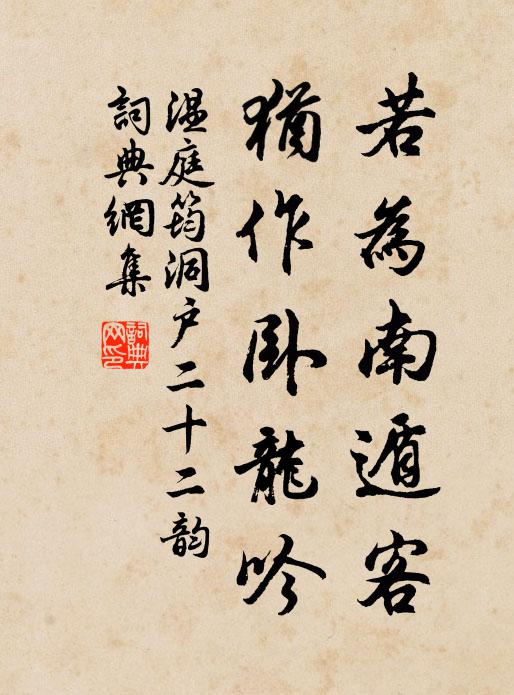 若為南遁客
猶作卧龍吟
温庭筠洞户二十二韵
詞典網集
詞典网印